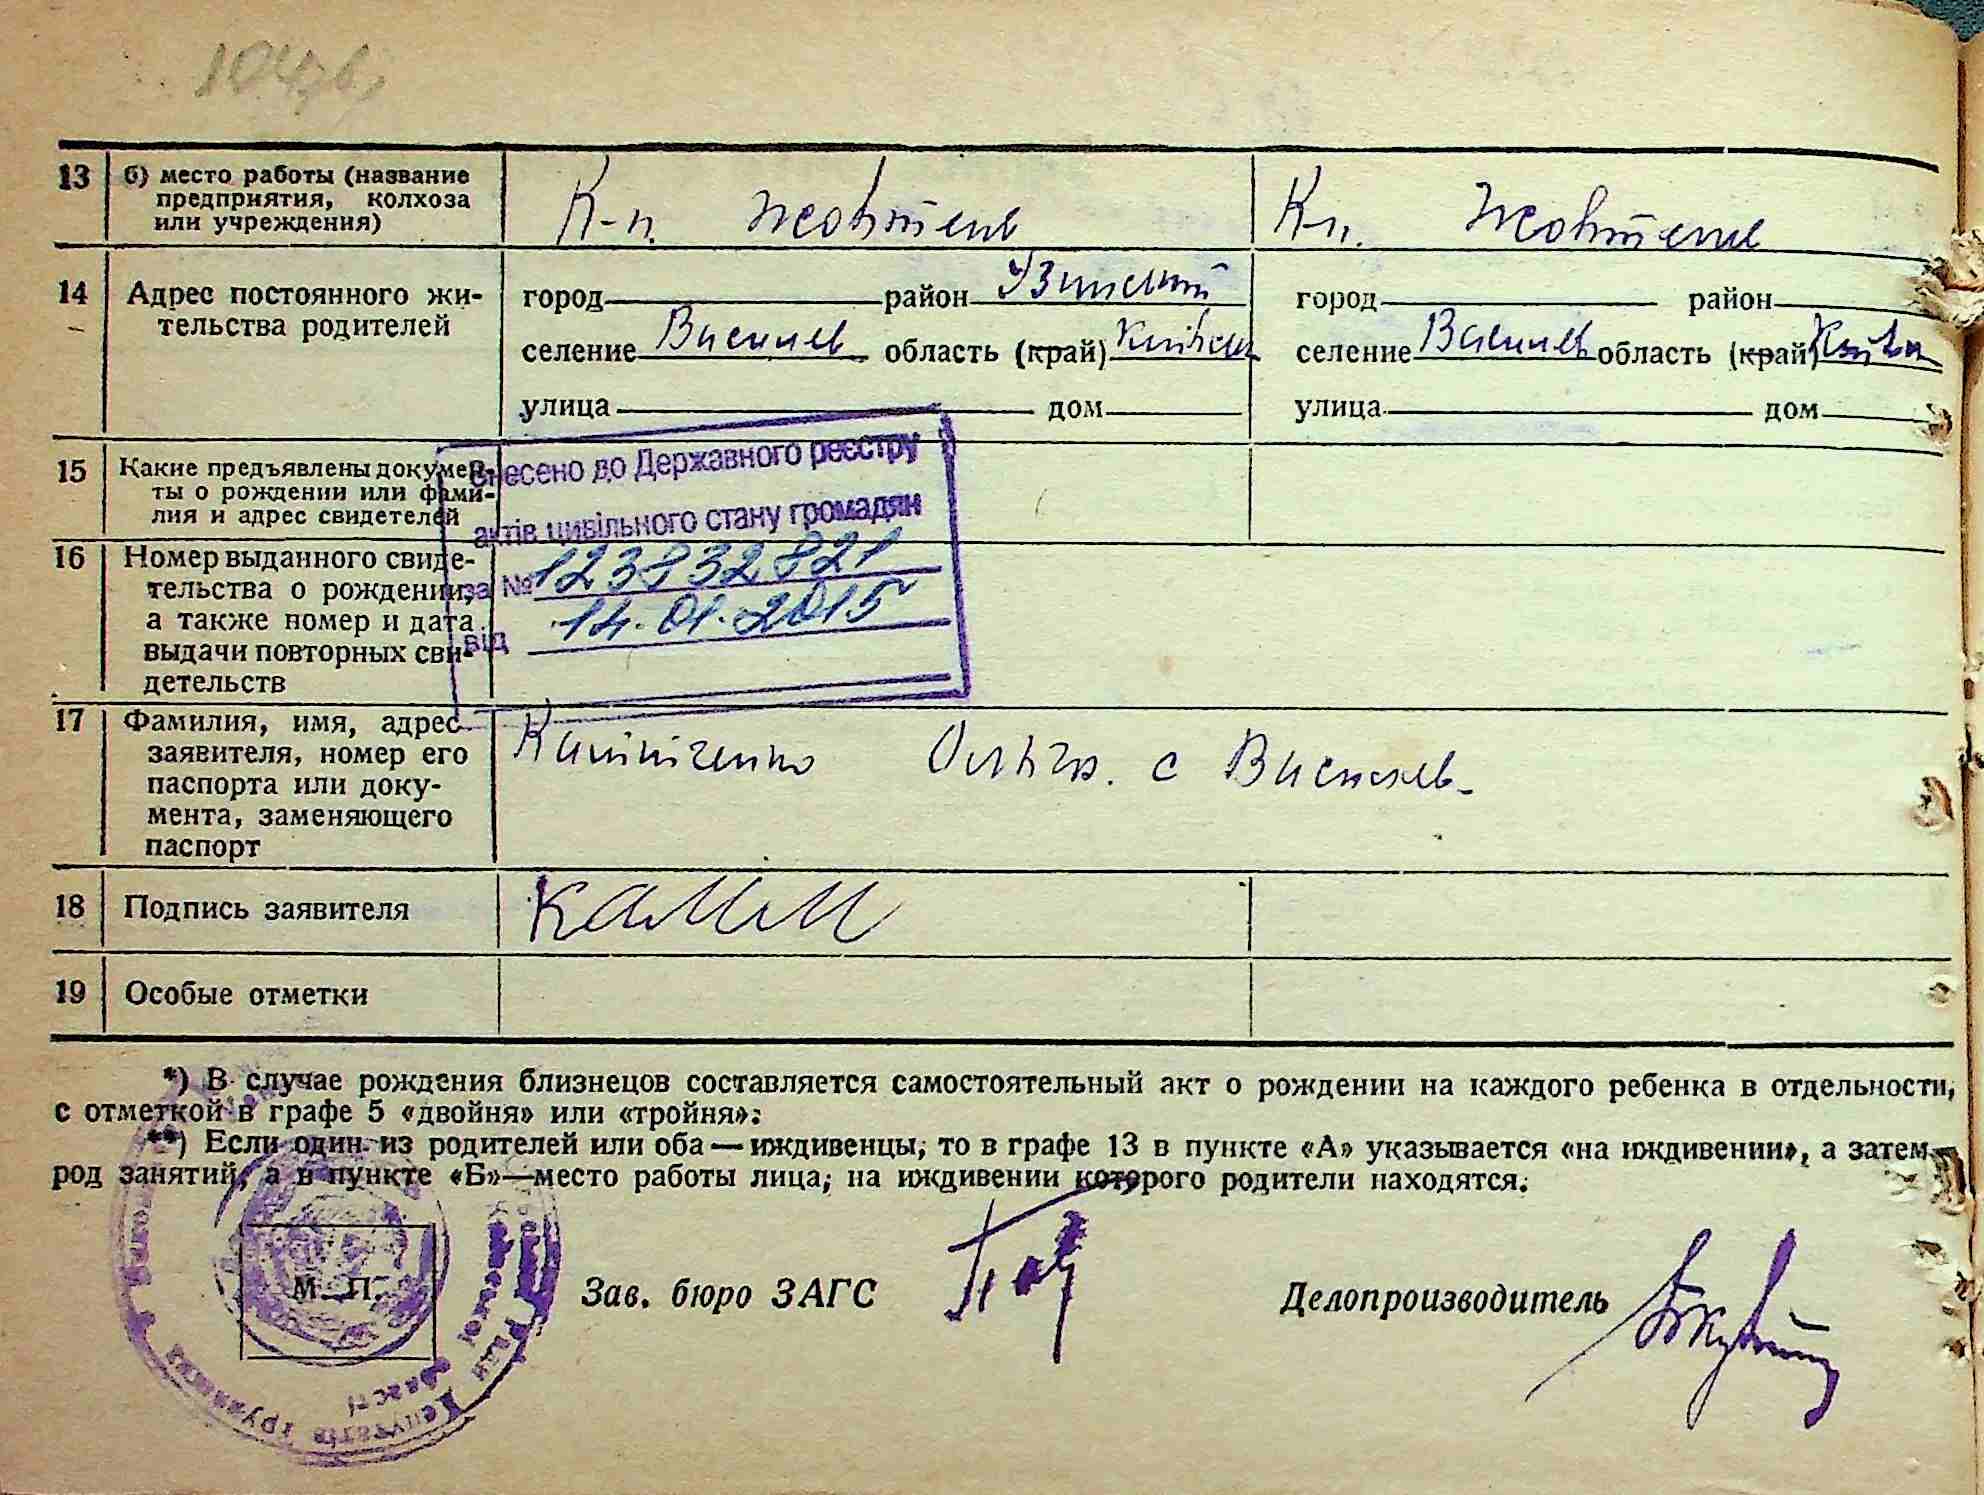 13 б) место работы (название
предприятия, колхоза
или учреждения)
К-п. Жовтень
Кп. Жовтень
14 Адрес постоянного жи-
тельства родителей
город район Узинський
селение Василев область (край) Київськ
улица дом
город район
селение Василев область (край) Київ
улица дом
15 Какие предъявлены докумен-
ты о рождении или фами-
лия и адрес свидетелей
Внесено до Державного реєстру
актів цивільного стану громадян
за № 123832821
від 14.01.2015
16 Номер выданного свиде-
тельства о рождении,
а также номер и дата
выдачи повторных сви-
детельств
17 Фамилия, имя, адрес
заявителя, номер его
паспорта или доку-
мента, заменяющего
паспорт
Ольга. с Василев.
18 Подпись заявителя
19 Особые отметки
*) В случае рождения близнецов составляется самостоятельный акт о рождении на каждого ребенка в отдельности,
с отметкой в графе 5 «двойня» или «тройня».
**) Если один из родителей или оба — иждивенцы, то в графе 13 в пункте «А» указывается «на иждивении», а затем
род занятий, а в пункте «Б»—место работы лица, на иждивении которого родители находятся.
М. П.
Зав. бюро ЗАГС
Делопроизводитель